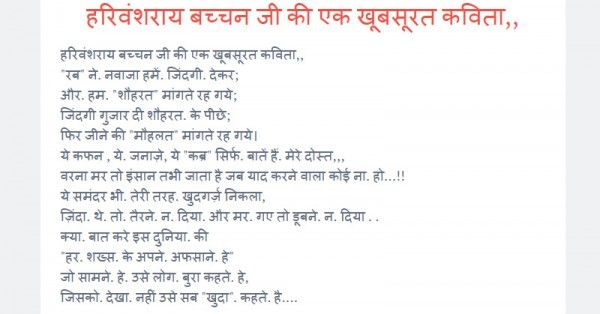 हरिवंशराय बच्चन जी की एक खूबसूरत कविता,,
हरिवंशराय बच्चन जी की एक खूबसूरत कविता,,
"रब" ने. नवाजा हमें. जिंदगी. देकर;
और. हम. "शौहरत" मांगते रह गये;
जिंदगी गुजार दी शौहरत. के पीछे;
फिर जीने की "मौहलत" मांगते रह गये।
ये कफन , ये. जनाज़े, ये "कब्र" सिर्फ. बातें हैं. मेरे दोस्त,,,
वरना मर तो इंसान तभी जाता है जब याद करने वाला कोई ना. हो...!!
ये समंदर भी. तेरी तरह. खुदगर्ज़ निकला,
ज़िंदा. थे. तो. तैरने. न. दिया. और मर. गए तो डूबने. न. दिया . .
क्या. बात करे इस दुनिया. की
"हर. शख्स. के अपने. अफसाने. हे"
जो सामने. हे. उसे लोग. बुरा कहते. हे,
जिसको. देखा. नहीं उसे सब "खुदा". कहते. है....